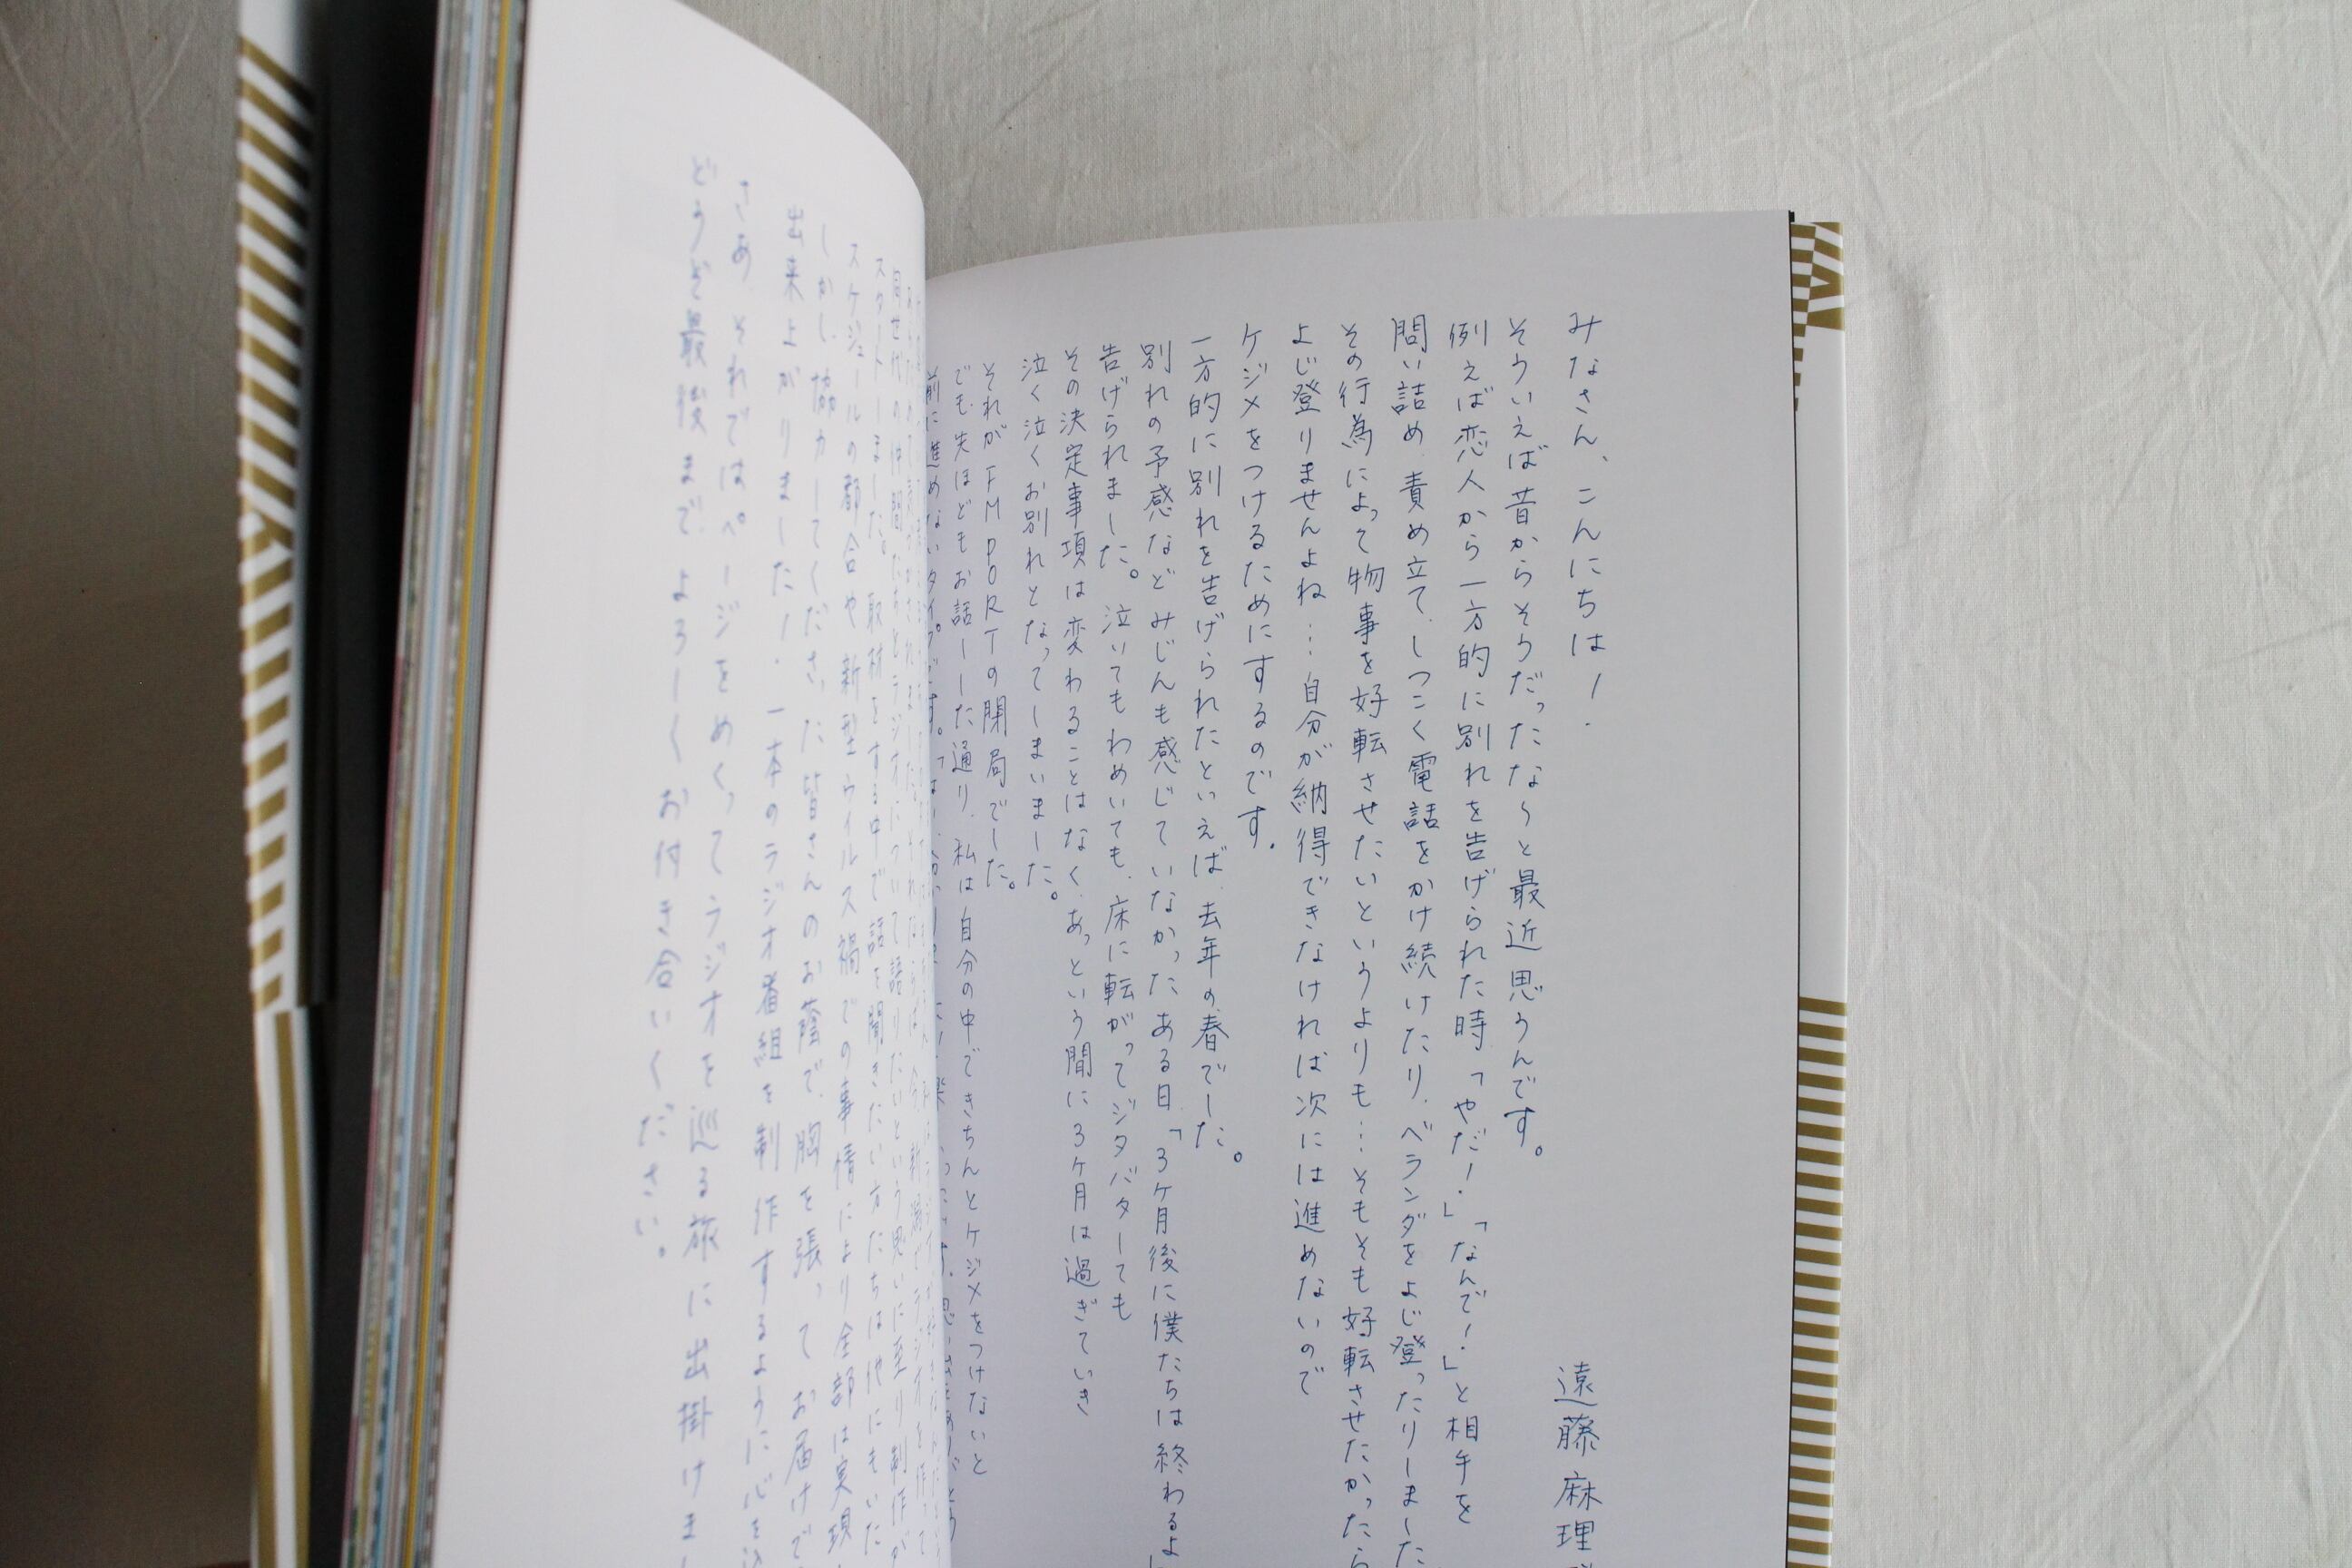 みなさん、こんにちは！
遠藤麻理
そういえば昔からそうだったな〜と最近思うんです。
例えば恋人から一方的に別れを告げられた時「やだ！」「なんで！」と相手を
問い詰め、責め立て、しつこく電話をかけ続けたり、ベランダをよじ登ったりしました
その行為によって物事を好転させたいというよりも…そもそも好転させたかったら
よじ登りませんよね…自分が納得できなければ次には進めないので
ケジメをつけるためにするのです。
一方的に別れを告げられたといえば、去年の春でした。
別れの予感などみじんも感じていなかったある日、「3ヶ月後に僕たちは終わるよ
告げられました。泣いてもわめいても、床に転がってジタバタしても
その決定事項は変わることはなく、あっという間に3ヶ月は過ぎていき
泣く泣くお別れとなってしまいました。
それがFM PORTの閉局でした。
でも、先ほどもお話しした通り、私は自分の中できちんとケジメをつけないと
前に進めないタイプです。
スタートしました。取材をする中で話を聞きたい方たちは他にもいた
スケジュールの都合や新型ウイルス禍での事情により全部は実現
しかし、協力してくださった皆さんのお蔭で、胸を張ってお届けで
出来上がりました！一本のラジオ番組を制作するように心を込
さあ、それではページをめくってラジオを巡る旅に出掛けまし
どうぞ最後まで、よろしくお付き合いください。